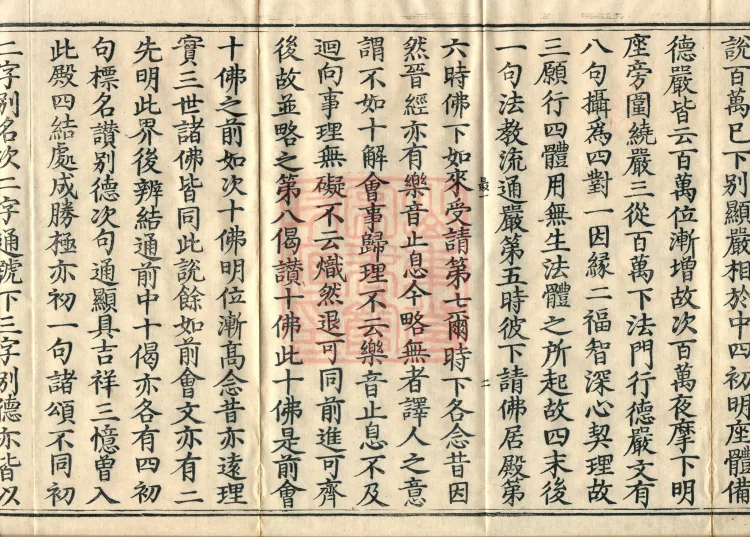 說百萬巳下別顯嚴相於中四初明座體備
德嚴皆云百萬位漸增故次百萬夜摩下明
座旁圍繞嚴三從百萬下法門行德嚴文有
八句攝為四對一因緣二福智深心契理故
三願行四體用無生法體之所起故四末後
一句法教流通嚴第五時彼下請佛居殿第
六時佛下如來受請第七爾時下各念昔因
然晉經亦有樂音止息今略無者譯人之意
謂不如十解會事歸理不云樂音止息不及
迴向事理無礙不云熾然退可同前進可齊
後故並略之第八偈讚十佛此十佛是前會
十佛之前如次十佛明位漸高念昔亦遠理
實三世諸佛皆同此說餘如前會文亦有二
先明此界後辨結通前中十偈亦各有四初
句標名讚別德次句通顯具吉祥三憶曾入
此殿四結處成勝極亦初一句諸頌不同初
二字別名次二字通號下三字別德亦皆以